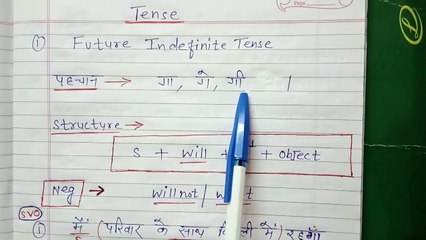 Tense
① Future Indefinite Tense
पहचान → गा, गे, गी |
Structure →
S + will + + Object
Neg → will not |
SVO
मैं (परिवार के साथ दिल्ली में) रहूँगा